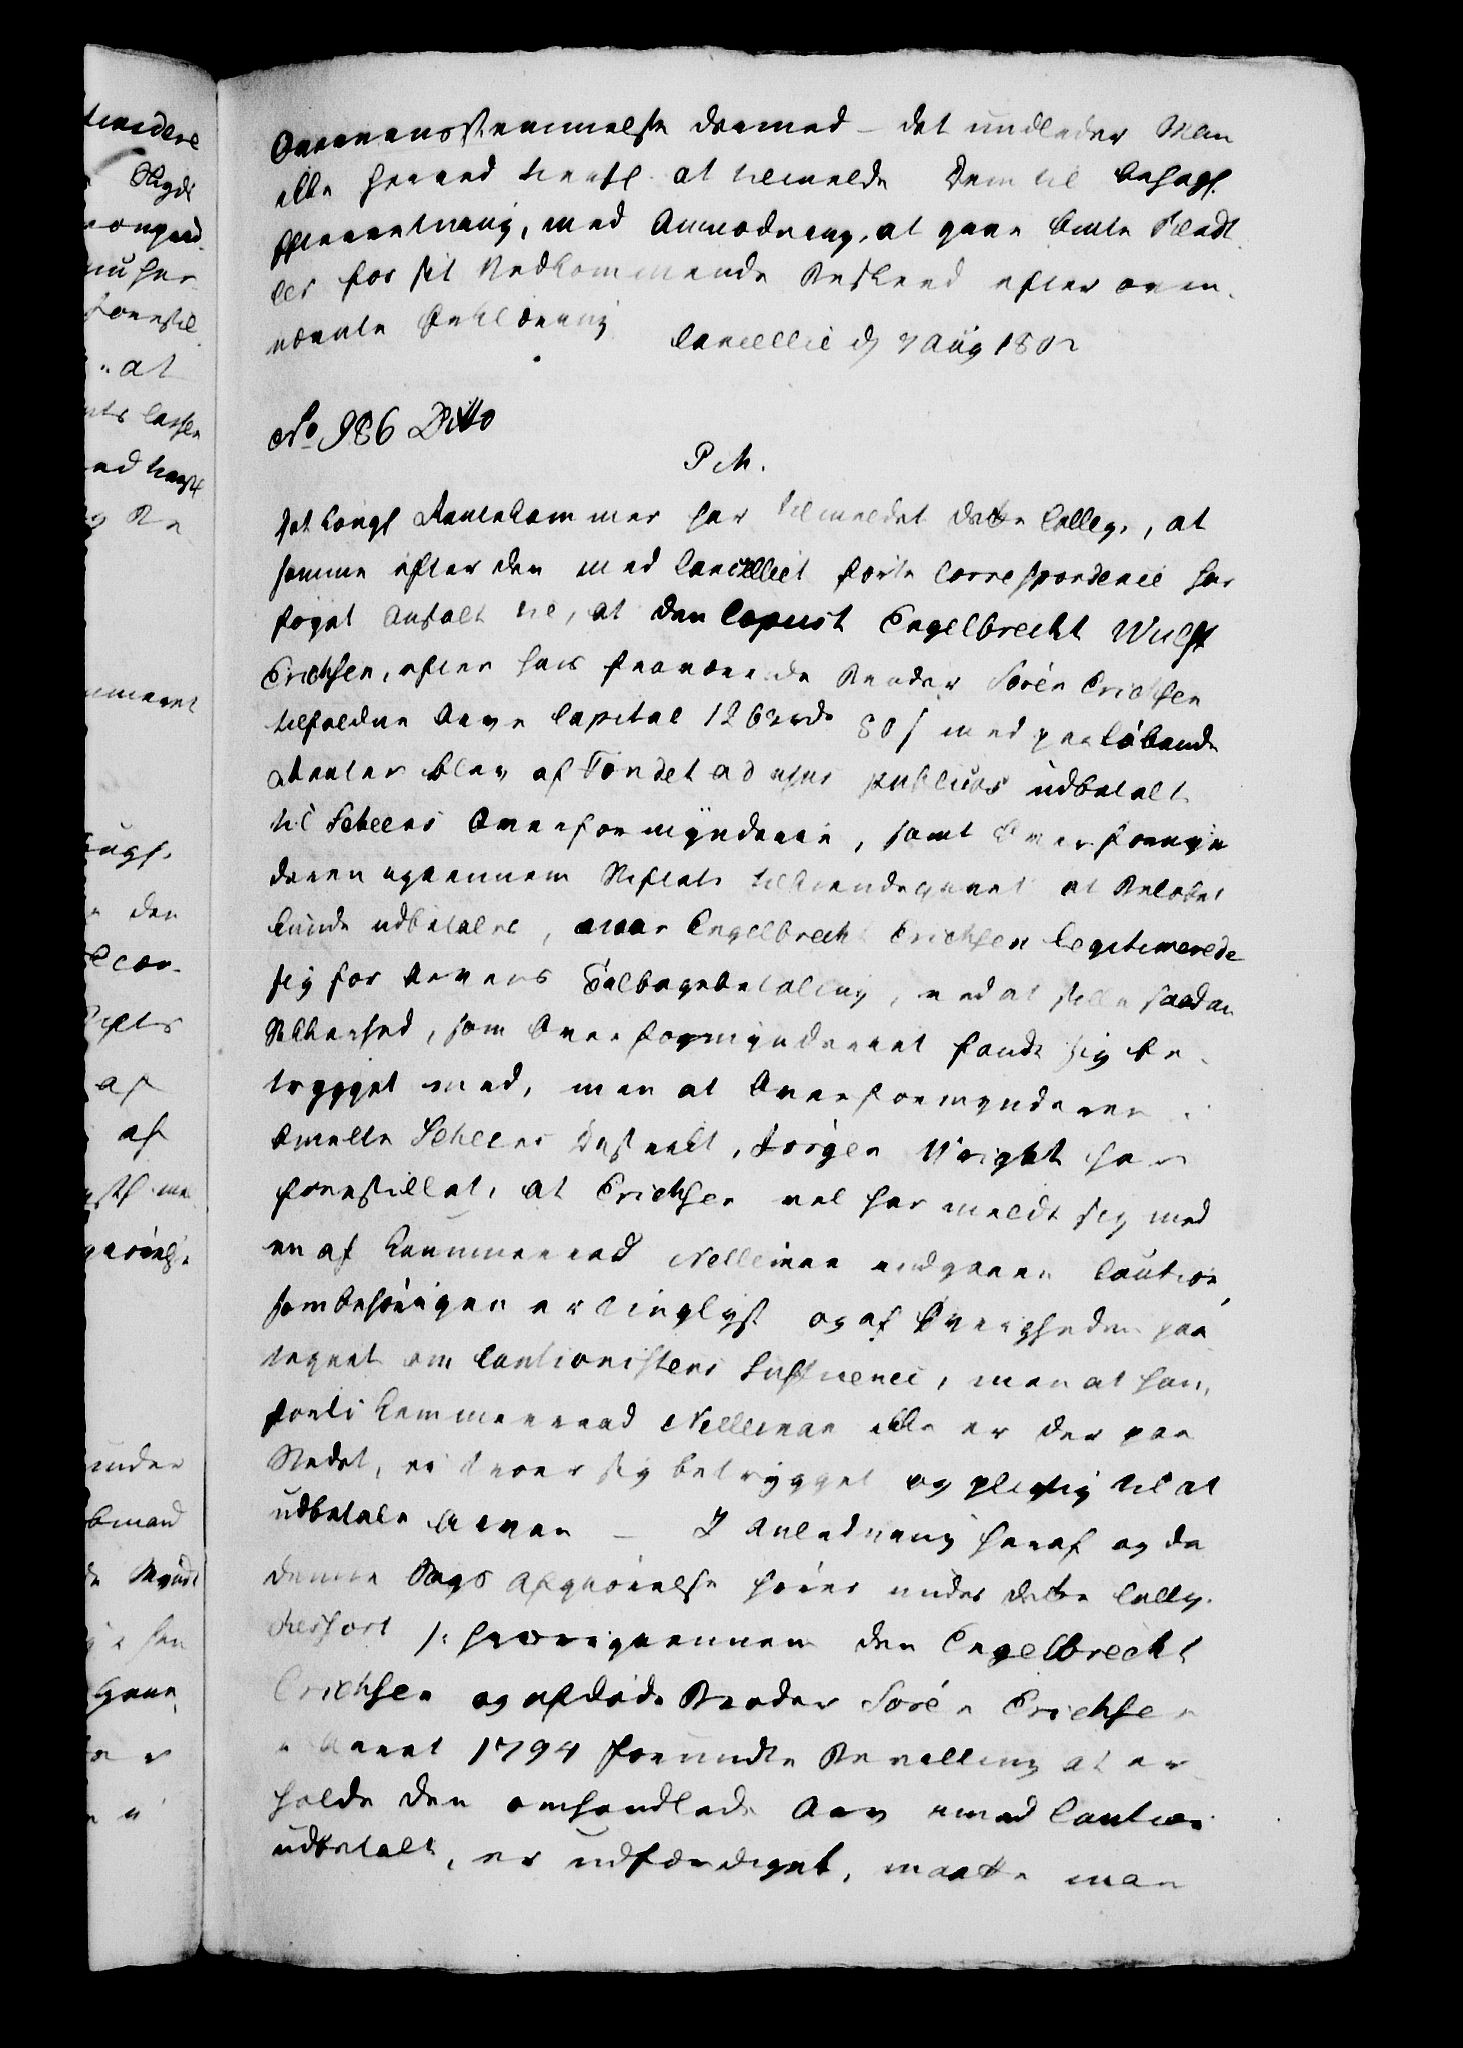 Overensstemmelse dermed - det undlader Man
ikke herved tienstl. at tilmelde Dem til behagl.
Efterretning, med Anmodning, at give Amts
for sit Vedkommende Beskeed efter oven
nævnte Erklæring
Cancelliet d 7 Aug 180
No 986 Ditto
P. M.
Det kongl Rentekammer har tilmeldet dette Colleg., at
samme efter den med Cancelliet førte Correspondence har
føget Anstalt til, at den Capust Engelbrecht Wulf
Erichsen, efter hans fraværende Broder Søren Erichsen
tilfaldne Arve Capital 1262 rd 80 s med paaløbende
Renter blev af Fondet ad usus publicos udbetalt
til Scheens Overformynderie, samt Overformyn
deren igiennem Stiftets tilkiendegivet at Beløbet
kunde udbetales, naar Engelbrecht Erichsen legitimerede
sig for Arvens Tilbagebetaling, ved at stille saadan
Sikkerhed, som Overformynderiet fandt sig be
trygget med, men at Overformynderen i
Amelle Scheens District, Jørgen Wright har
forestillet, at Erichsen vel har meldt sig med
en af Kammerraad Nelleman udgiven Caution,
som behørigen er tinglyst og af Øvrigheden paa
tegnet om Cautionistens Suffience, men at han,
fordi Kammerraad Nelleman ikke er der paa
Stedet, ei troer sig betrygget og pligtig til at
udbetale Arven - I Anledning heraf og da
denne Sags Afgiørelse hører under dette Colleg.
Ressort /: hvorigiennem den Engelbrecht
Erichsen og afdøde Broder Søren Erichsen
i Aaret 1794 forundte Bevilling at er
holde den omhandlede Arv imod Caution
udbetalt, er udfærdiget, maatte man